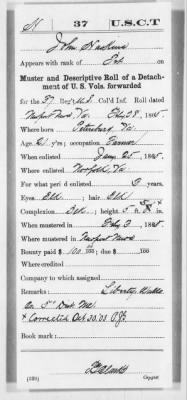 H 37 U.S.C.T
John
Appears with rank of Pvt
Muster and Descriptive Roll of a Detachment of U. S. Vols. forwarded
for the 37 Reg't U.S. Col'd Inf. Roll dated
Newport News, Va. Feby 28, 1865
Where born Petersburg, Va
Age 21 y'rs; occupation Farmer
When enlisted Jany 25, 1865
Where enlisted Norfolk, Va
For what period enlisted 3 years.
Eyes Blk ; hair Blk
Complexion Blk ; height 5 ft. in.
When mustered in Feby 3, 1865
Where mustered in Newport News
Bounty paid $ 100 100; due $ 100
Where credited
Company to which assigned
Remarks:
Book mark:
(339) Copyist